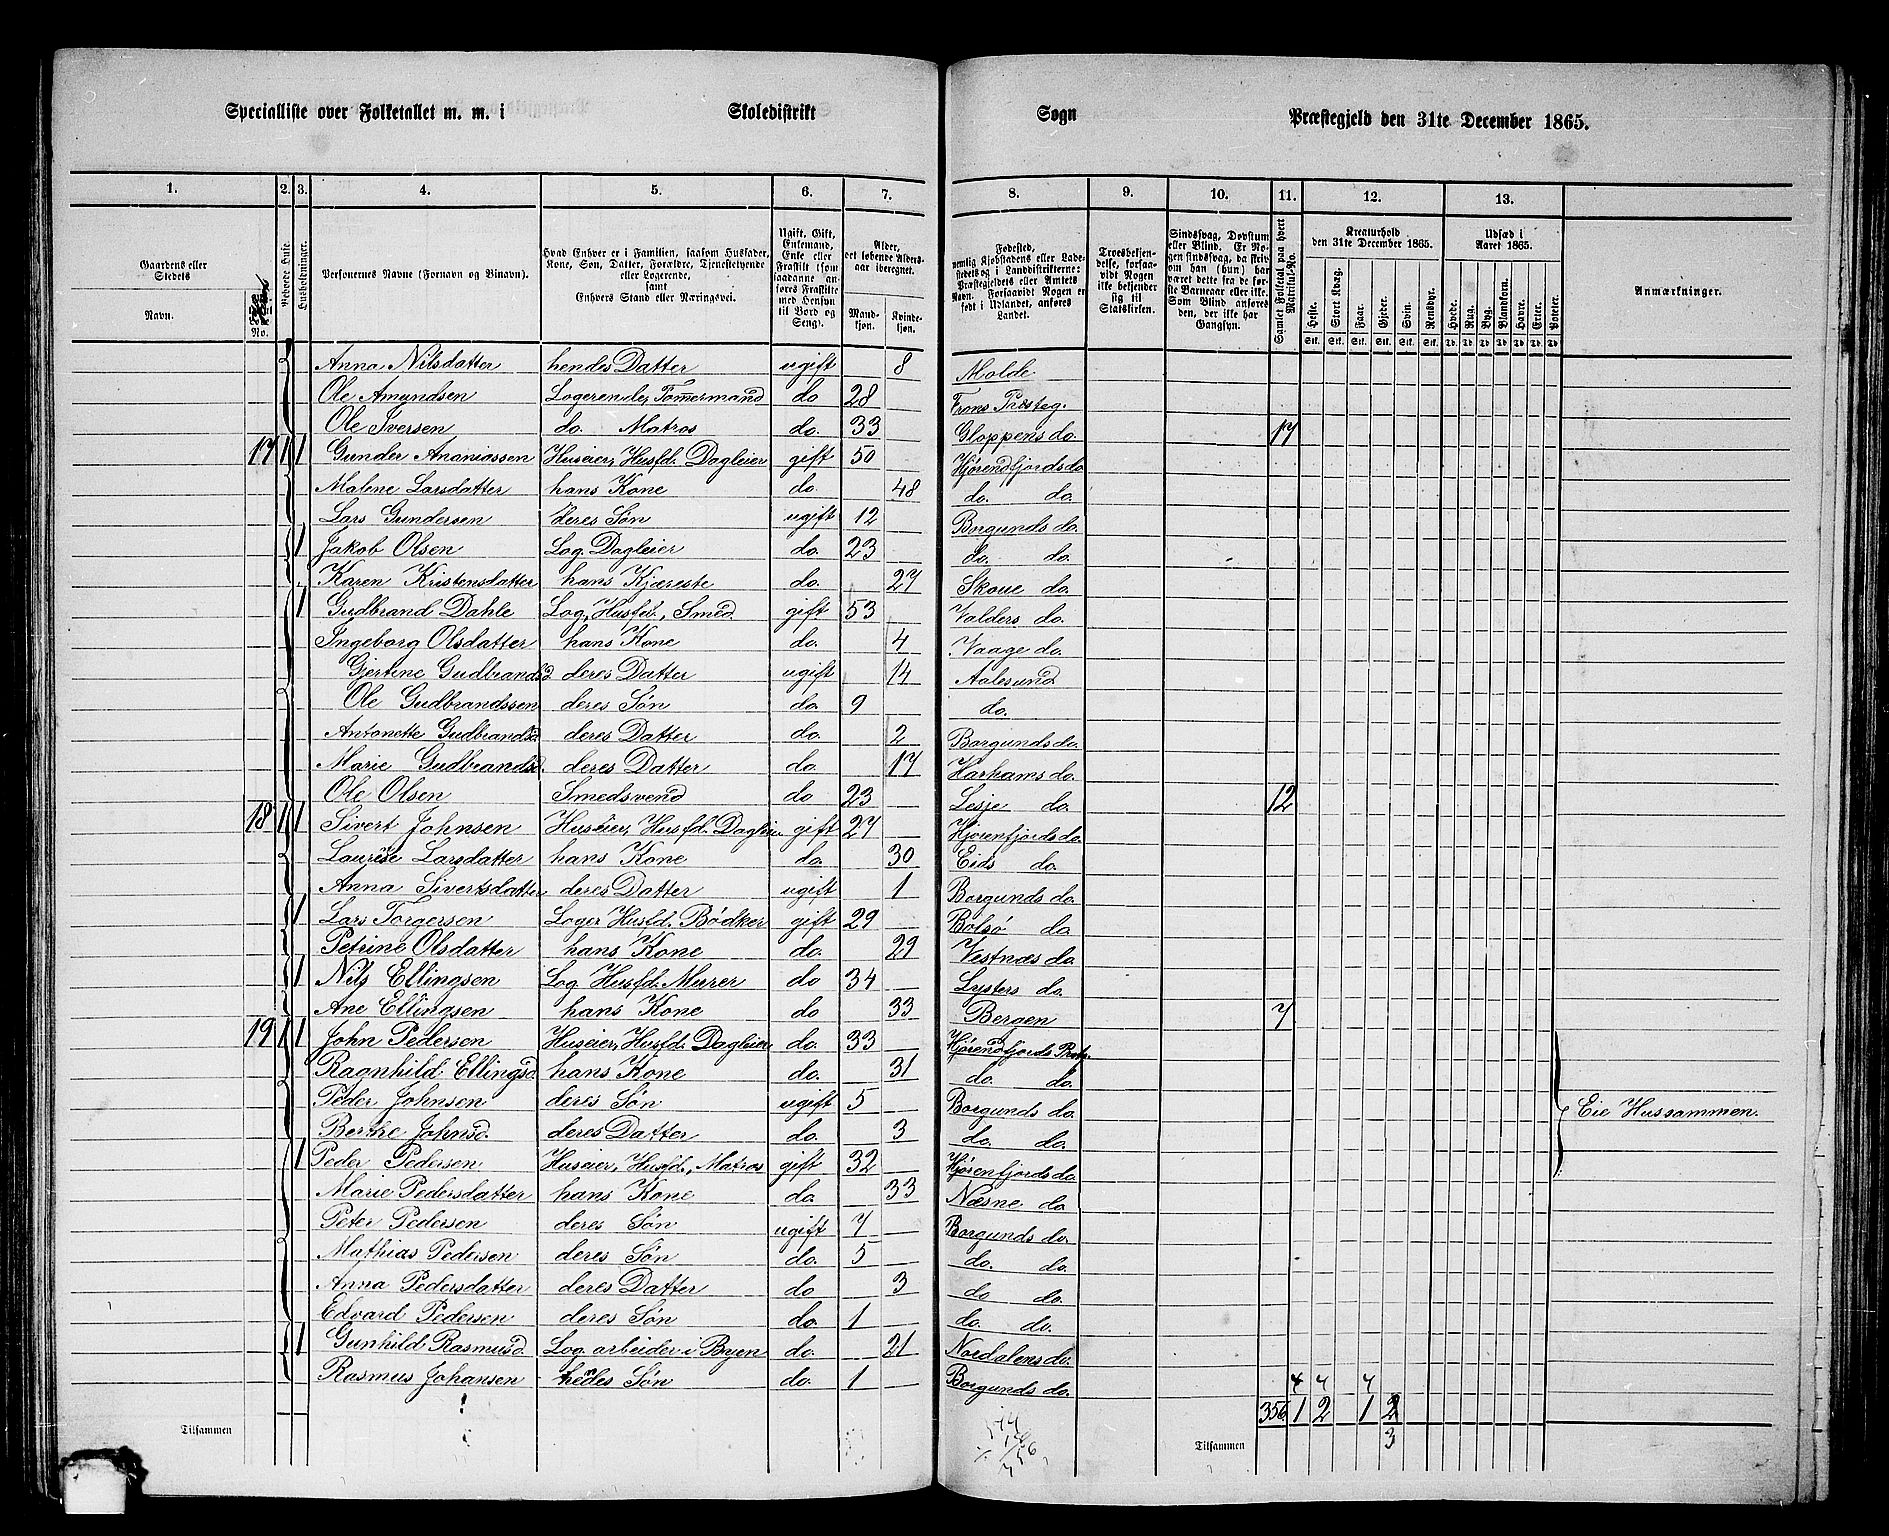 Specialliste over Folketallet m. m. i Skoledistrikt Sogn Præstegjeld den 31te December 1865.
1. 2. 3. 4. 5. 6. 7. 8. 9. 10. 11. 12. 13.
Gaardens eller Stedets Navn. No. Beboede Huse. Husholdninger. Personernes Navne (Fornavn og Binavn). Hvad Enhver er i Familien, saasom Husfader, Kone, Søn, Datter, Forældre, Tjenestetyende eller Logerende, samt Enhvers Stand eller Næringsvei. Ugift, Gift, Enkemand, Enke eller Fraskilt (som saadanne anføres Fraskilte med Hensyn til Bord og Seng). Alder, det løbende Alders-aar iberegnet. Mandkjøn. Kvindekjøn. Fødested, nemlig Kjøbstadens eller Ladestedets og i Landdistrikterne: Præstegjeldets eller Amtets Navn. Forsaavidt Nogen er født i Udlandet, anføres Landet. Troesbekjendelse, forsaavidt Nogen ikke bekjender sig til Statskirken. Sindssvag, Døvstum eller Blind. Er Nogen sindssvag, da skriv om han (hun) har været dette fra de første Barneaar eller ikke. Som Blind anføres den, der ikke har Gangsyn. Samlet Folketal paa hvert Matrikul-No. Kreaturhold den 31te December 1865. Heste. Stort Kvæg. Faar. Gjeder. Svin. Rensdyr. Udsæd i Aaret 1865. Hvede. Rug. Byg. Blandkorn. Havre. Erter. Poteter. Anmærkninger.
Anna Nilsdatter hendes Datter ugift 8 Molde
Ole Amundsen Logerende, Tømermand do 28 Frons Præsteg.
Ole Iversen do. Matros do. 33 Gloppens do. 17
17 1 1 Gunder Ananiassen Huseier, Husfd. Dagleier gift 50 Hjørendfjords do
Malene Larsdatter hans Kone do. 48 do. do.
Lars Gundersen deres Søn ugift 12 Borgunds do.
1 Jakob Olsen Log. Dagleier do. 23 do. do.
Karen Kristensdatter hans Kjæreste do. 27 Skoue do.
1 Gudbrand Dahle Log, Husfd., Smed gift 53 Valders do.
Ingeborg Olsdatter hans Kone do. 4 Vaage do.
Gjertine Gudbrandsd deres Datter ugift 14 Aalesund
Ole Gudbrandssen deres Søn do. 9 do.
Antonette Gudbrandsd. deres Datter do. 2 Borgunds do.
Marie Gudbrandsd. deres Datter do. 17 Harhams do.
Ole Olsen Smedsvend do 23 Lesje do. 12
18 1 1 Sivert Johnsen Huseier, Husfd. Dagleier gift 27 Hjørenfjords do.
Laurise Larsdatter hans Kone do. 30 Eids do.
Anna Sivertsdatter deres Datter ugift 1 Borgunds do.
1 Lars Torgersen Loger Husfd. Bødker gift 29 Bolsø do.
Petrine Olsdatter hans Kone do. 29 Vestnæs do.
1 Nils Ellingsen Log. Husfd. Murer do 34 Lysters do.
Ane Ellingsen hans Kone do 33 Bergen 7
19 1 1 John Pedersen Huseier, Husfd. Dagleier do. 33 Hjørendfjords Præstg.
Ragnhild Ellingsd. hans Kone do. 31 do. do.
Peder Johnsen deres Søn ugift 5 Borgunds do. Eie Hussammen.
Berthe Johnsd. deres Datter do. 3 do. do.
1 Peder Pedersen Huseier, Husfd., Matros gift 32 Hjørenfjords do.
Marie Pedersdatter hans Kone do. 33 Næsne do.
Peter Pedersen deres Søn ugift 7 Borgunds do.
Mathias Pedersen deres Søn do. 5 do. do.
Anna Pedersdatter deres Datter do 3 do do.
Edvard Pedersen deres Søn do. 1 do. do.
1 Gunhild Rasmusd. Log. arbeider i Byen do. 21 Nordalens do.
Rasmus Johansen hedes Søn do. 1 Borgunds do.
4 7 7
356 1 2 1 2
Tilsammen Tilsammen 3